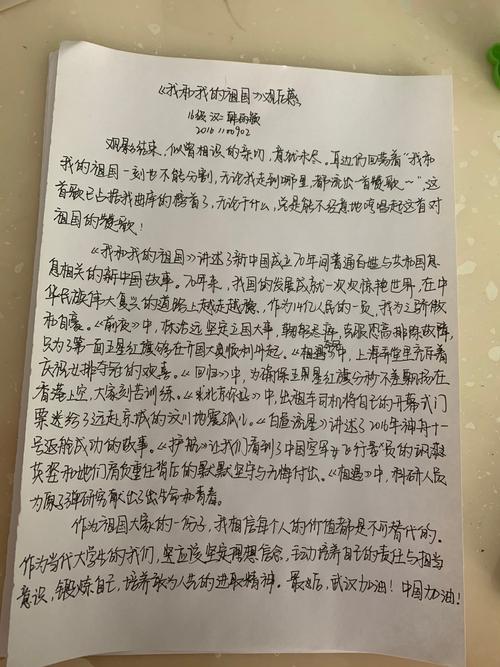 《我和我的祖国》观后感
16级 汉二 韩雨
20161100902
观影结束，似曾相识的亲切，意犹未尽。耳边仍回荡着“我和
我的祖国一刻也不能分割，无论我走到哪里，都流出一首赞歌～”，这
首歌已占据我曲库的榜首了，无论干什么，总是能不经意地哼唱起这首对
祖国的赞歌！
《我和我的祖国》讲述了新中国成立70年间普通百姓与共和国息
息相关的新中国故事。70年来，我国的发展成就一次次惊艳世界，在中
华民族伟大复兴的道路上越走越稳，作为14亿人民的一员，我为之骄傲
和自豪。《前夜》中，林治远坚定立国大事，克服困高排除故障，
只为了第一面五星红旗够在开国大典顺利升起。《相遇》中，上海弄堂里充斥着
庆祝女排夺冠的欢喜。《回归》中，为确保五星红旗分秒不差飘扬在
香港上空，大家刻苦训练。《北京你好》中，出租车司机将自己的开幕式门
票送给了远赴京城的汶川地震孤儿。《白昼流星》讲述了2016年神舟十一
号返航成功的故事。《护航》让我们看到了中国空军女飞行员的飒爽
英姿和她们肩负重任背后的默默坚守与无悔付出。《相遇》中，科研人员
为原子弹研究献出了生命和青春。
作为祖国大家的一份子，我相信每个人的价值都是不可替代的。
作为当代大学生的我们，更应该坚定理想信念，主动培养自己的责任与担当
意识，锻炼自己，培养敢为人先的进取精神。最后，武汉加油！中国加油！